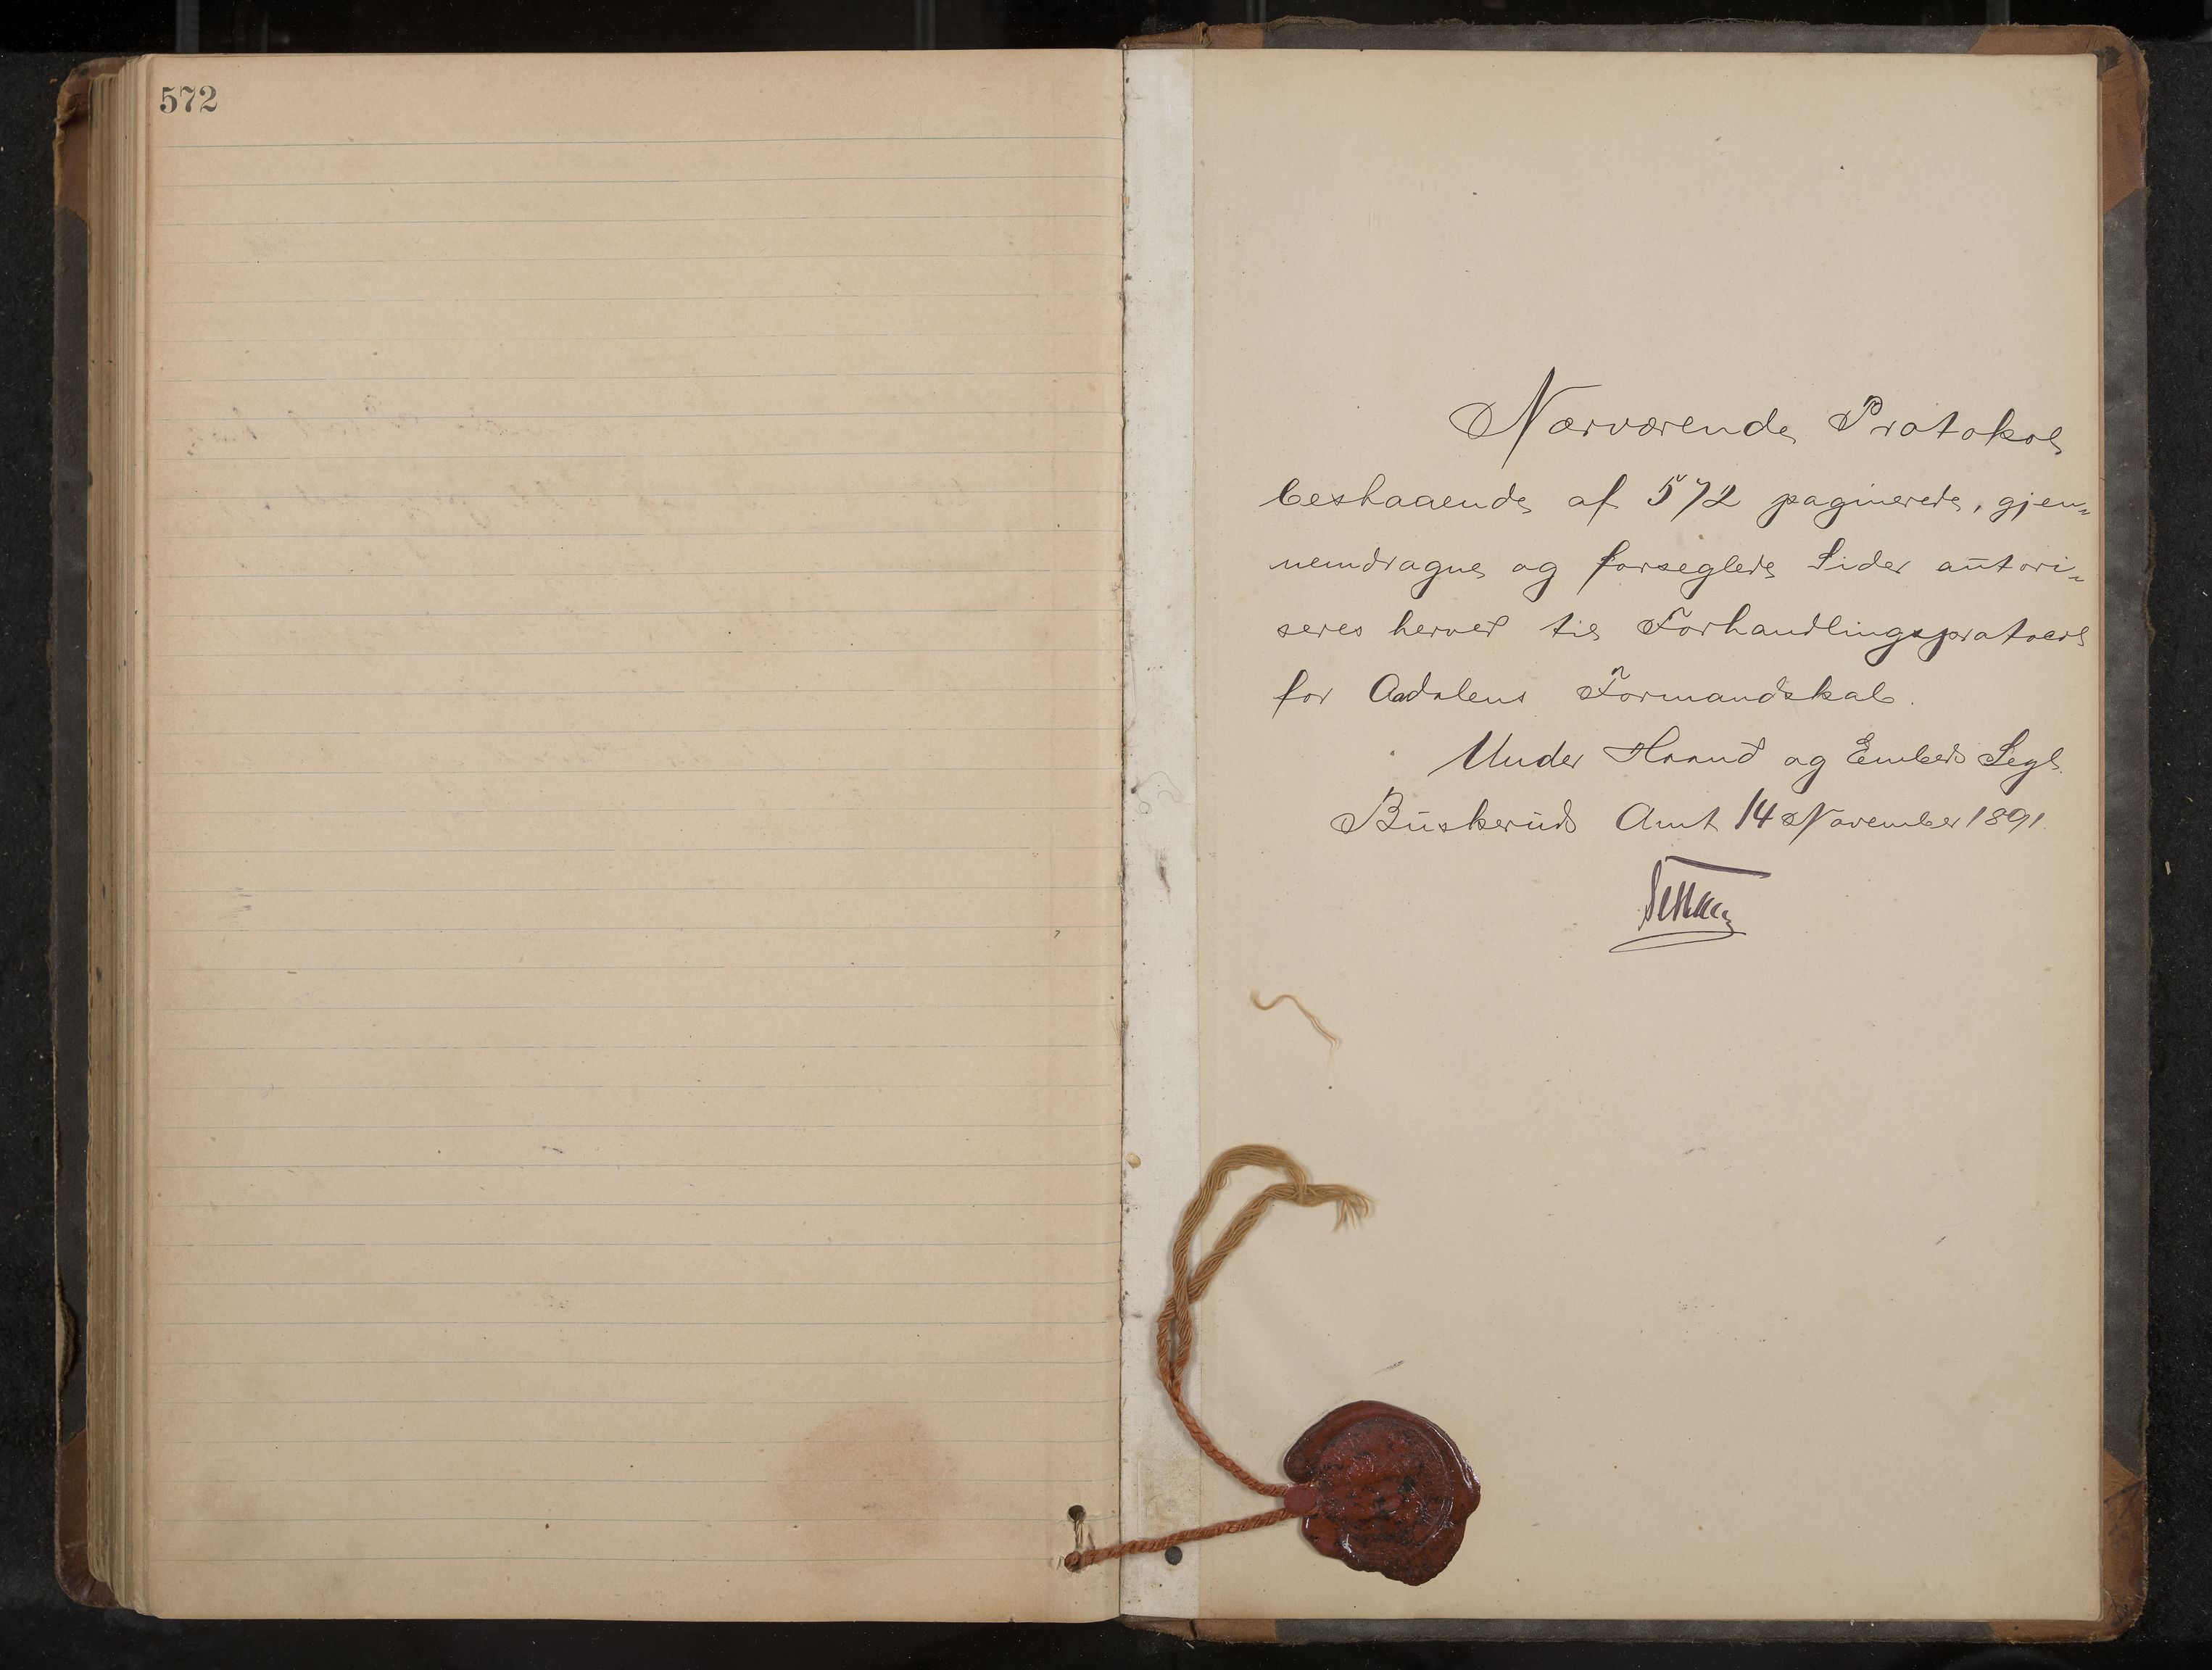 572
Nærværende Protokol
bestaaende af 572 paginerede, gjen-
nemdragne og forseglede Sider autori-
seres herved til Forhandlingsprotocol
for Aadalens Formandskab.
Under Haand og Embeds Segl.
Buskeruds Amt 14 November 1891.